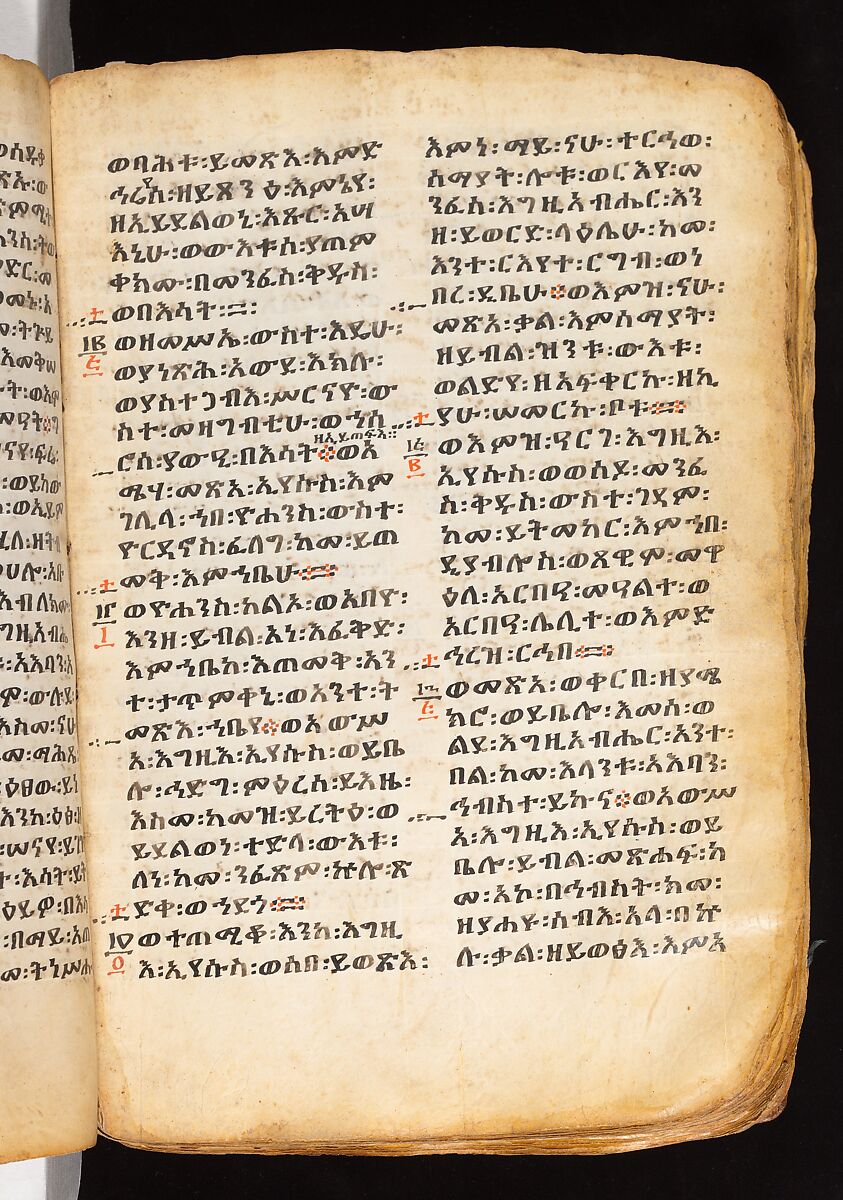 ወባሕቱ፡ይመጽእ፡እምድ
ኅሬየ፡ዘይጸንዕ፡እምኔየ፡
ዘኢይደልወኒ፡እጹር፡አሣ
እኒሁ፡ወውእቱሰ፡ያጠም
ቀክሙ፡በመንፈስ፡ቅዱስ፡
ወበእሳት።
፲፪ ወዘመሥኤ፡ውስተ፡እዴሁ፡
፭ ወያነጽሕ፡አውደ፡እክሉ፡
ወያስተጋብእ፡ሥርናዮ፡ው
ስተ፡መዘግብቲሁ፡ወኀሰ
ዘኢይጠፍእ፡
ሮሰ፡ያውዒ፡በእሳት፨ወአ
ሜሃ፡መጽአ፡ኢየሱስ፡እም
ገሊላ፡ኀበ፡ዮሐንስ፡ውስተ፡
ዮርዳኖስ፡ፈለግ፡ከመ፡ይጠ
መቅ፡እምኀቤሁ።
፲፫ ወዮሐንስ፡ከልኦ፡ወአበዮ፡
፲ እንዘ፡ይብል፡አነ፡እፈቅድ፡
እምኀቤከ፡እጠመቅ፡አን
ተ፡ታጥምቀኒ፡ወአንተ፡ት
መጽእ፡ኀቤየ፨ወአውሥ
አ፡እግዚእ፡ኢየሱስ፡ወይቤ
ሎ፡ኀድግ፡ምዕረሰ፡ይእዜ፡
እስመ፡ከመዝ፡ይረትዕ፡ወ
ይደልወነ፡ተድላ፡ውእቱ፡
ለነ፡ከመ፡ንፈጽም፡ኵሎ፡ጽ
ድቀ፡ወኀደጎ።
፲፬ ወተጠሚቆ፡እንከ፡እግዚ
እ፡ኢየሱስ፡ወሰበ፡ይወጽእ፡
እምነ፡ማይ፡ናሁ፡ተርኅወ፡
ሰማያት፡ሎቱ፡ወርእየ፡መ
ንፈሰ፡እግዚአብሔር፡እን
ዘ፡ይወርድ፡ላዕሌሁ፡ከመ፡
እንተ፡ርእየተ፡ርግብ፡ወነ
በረ፡ዲቤሁ፨ወእምዝ፡ናሁ፡
መጽአ፡ቃል፡እምሰማያት፡
ዘይብል፡ዝንቱ፡ውእቱ፡
ወልድየ፡ዘአፍቀርኩ፡ዘኪ
ያሁ፡ሠመርኩ፡ቦቱ።
፲፭ ወእምዝ፡ዓርገ፡እግዚእ፡
፪ ኢየሱስ፡ወወሰዶ፡መንፈ
ስ፡ቅዱስ፡ውስተ፡ገዳም፡
ከመ፡ይትመከር፡እምኀበ፡
ዲያብሎስ፡ወጸዊም፡መዋ
ዕለ፡አርበዓ፡መዓልተ፡ወ
አርበዓ፡ሌሊተ፡ወእምድ
ኅረዝ፡ርኅበ።
፲፮ ወመጽአ፡ወቀርበ፡ዘያሜ
፭ ክሮ፡ወይቤሎ፡እመሰ፡ወ
ልደ፡እግዚአብሔር፡አንተ፡
በል፡ከመ፡እላንቱ፡አእባን፡
ኅብስተ፡ይኩና፨ወአውሥ
አ፡እግዚእ፡ኢየሱስ፡ወይ
ቤሎ፡ይብል፡መጽሐፍ፡ከ
መ፡አኮ፡በኅብስት፡ክመ፡
ዘያሐዩ፡ሰብእ፡አላ፡በኵ
ሉ፡ቃል፡ዘይወፅእ፡እምአ